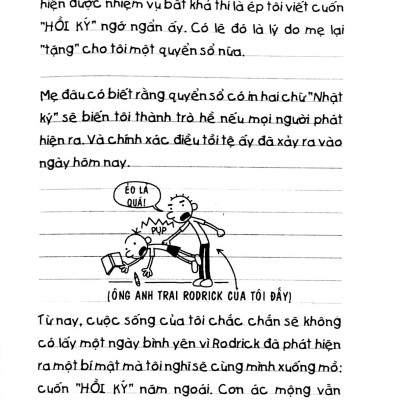 hiện được nhiệm vụ bất khả thi là ép tôi viết cuốn
"HỒI KÝ" ngớ ngẩn ấy. Có lẽ đó là lý do mẹ lại
"tặng" cho tôi một quyển sổ nữa.
Mẹ đâu có biết rằng quyển sổ có in hai chữ "Nhật
ký" sẽ biến tôi thành trò hề nếu mọi người phát
hiện ra. Và chính xác điều tồi tệ ấy đã xảy ra vào
ngày hôm nay.
ẺO LẢ
QUÁ!
PỤP
(ÔNG ANH TRAI RODRICK CỦA TÔI ĐẤY)
Từ nay, cuộc sống của tôi chắc chắn sẽ không
có lấy một ngày bình yên vì Rodrick đã phát hiện
ra một bí mật mà tôi nghĩ sẽ cùng mình xuống mồ:
cuốn "HỒI KÝ" năm ngoái. Cơn ác mộng vẫn